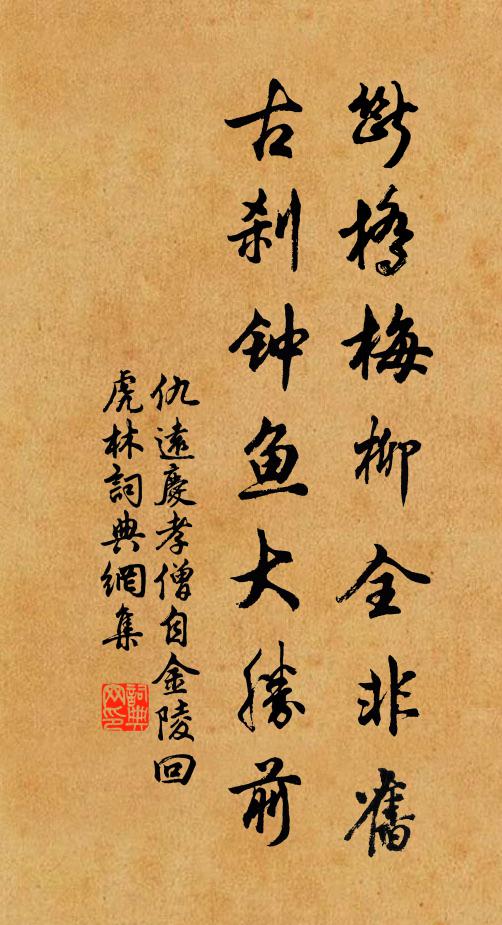 断桥梅柳全非舊
古刹钟鱼大勝前
仇遠慶孝僧自金陵回
虎林詞典網集
詞典网印